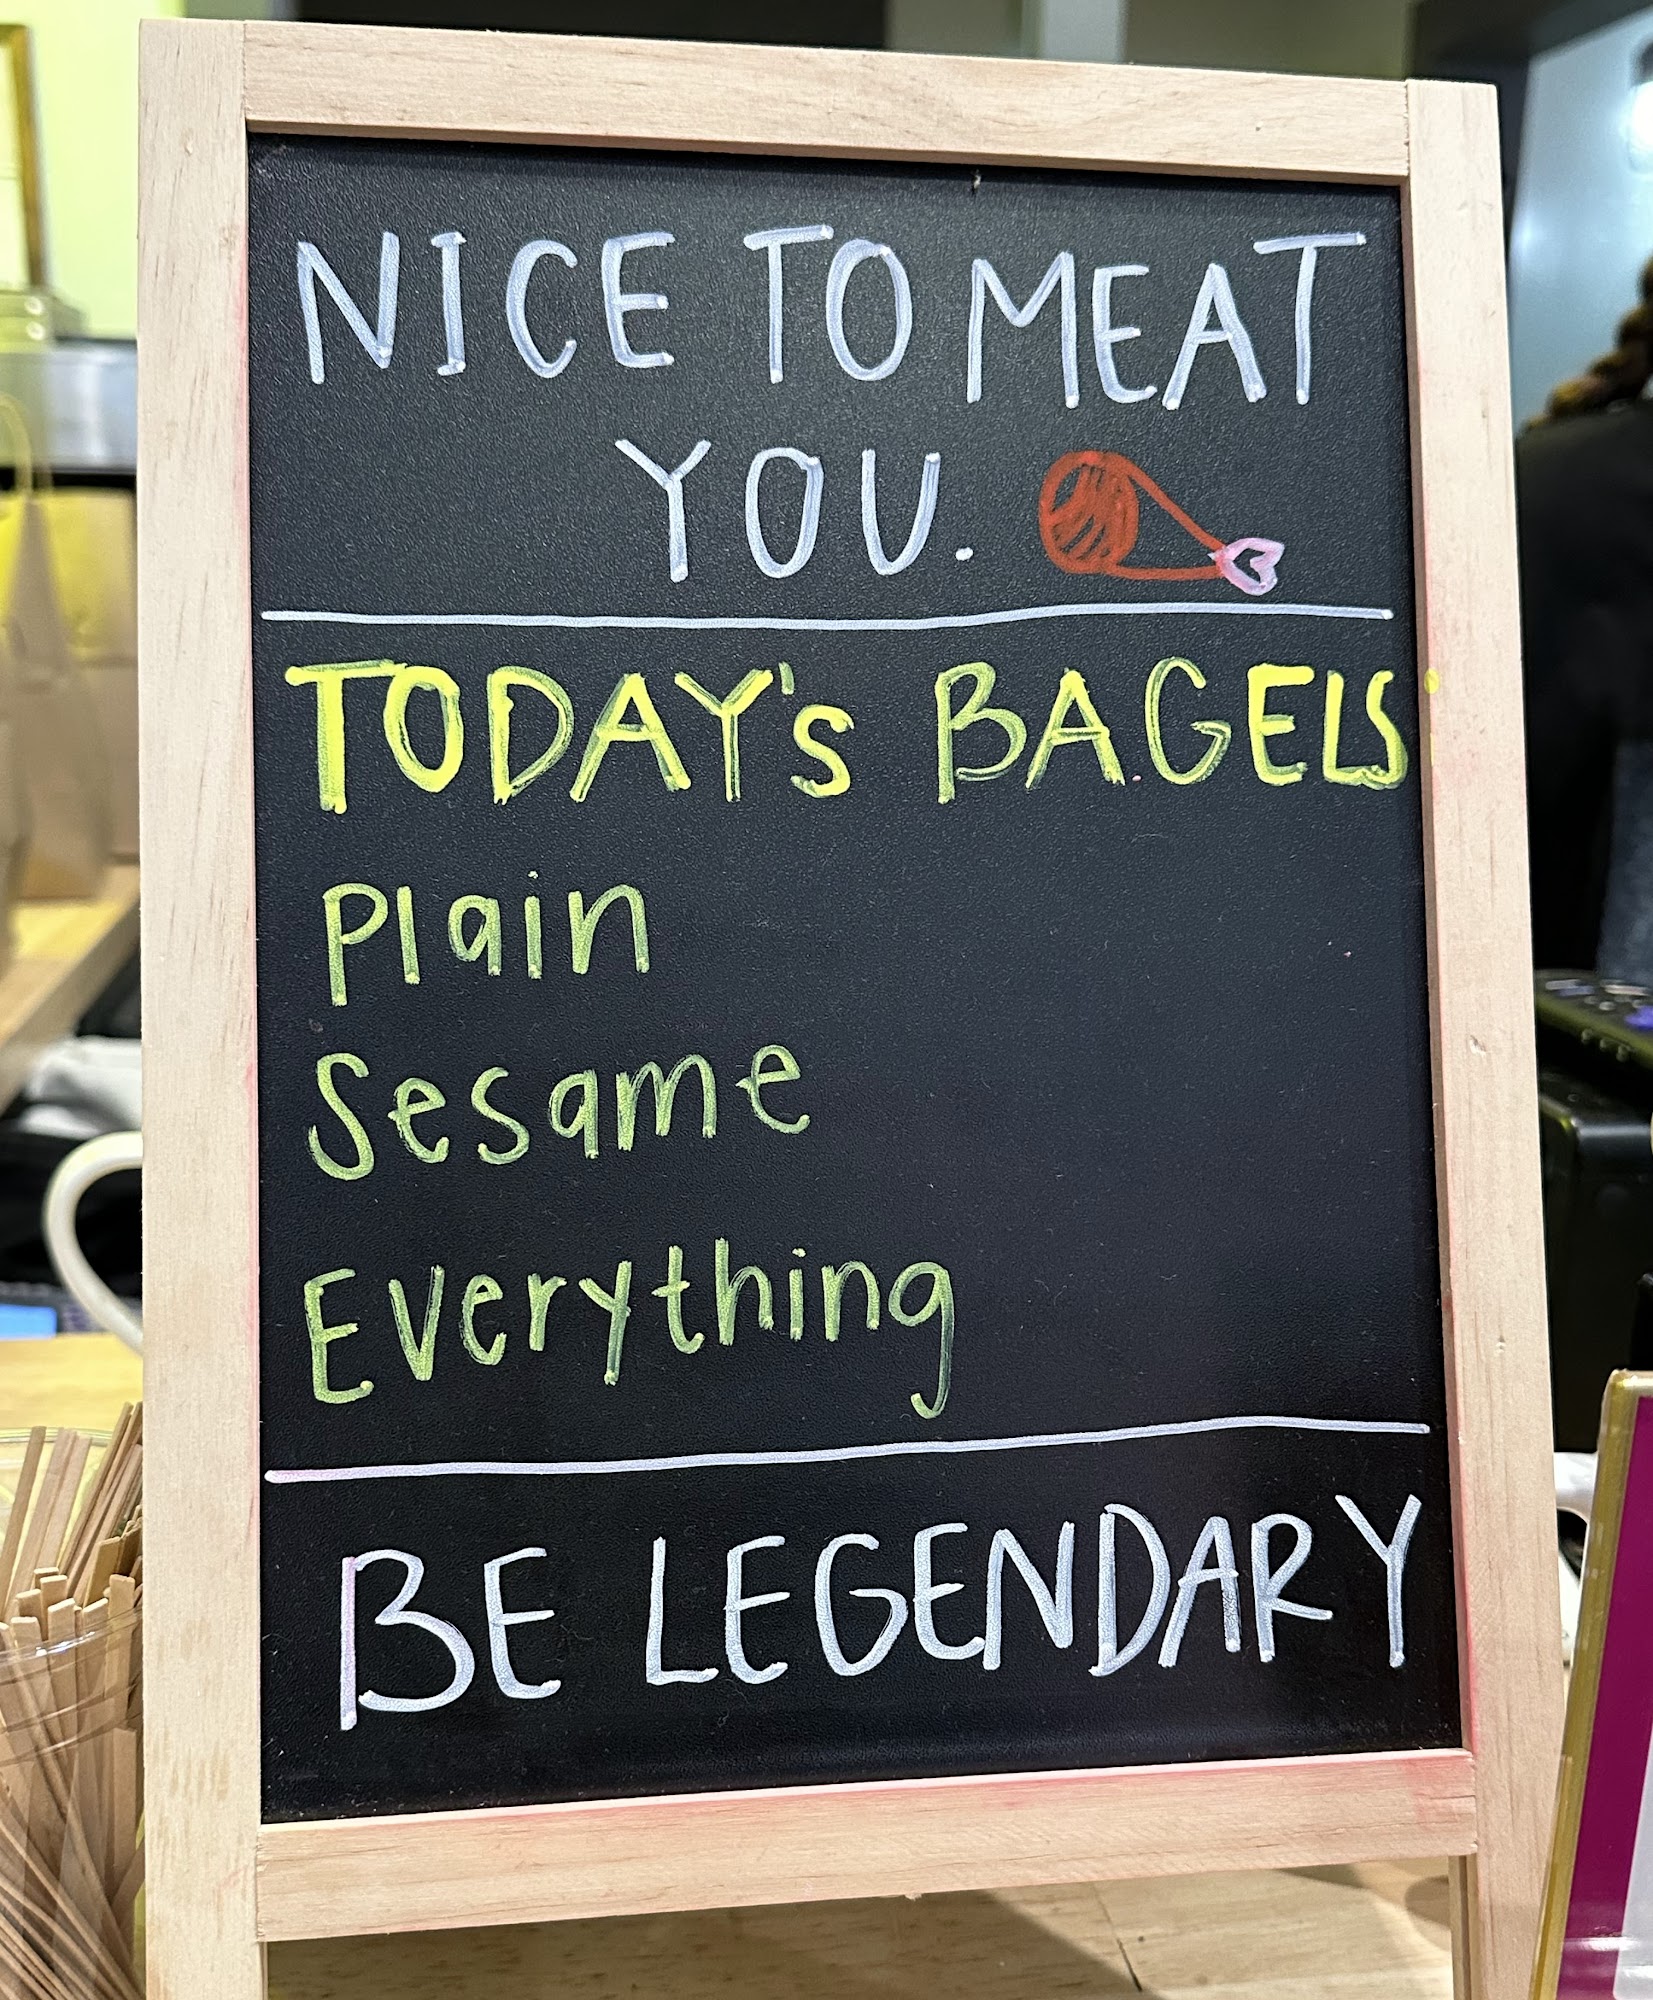 NICE TO MEAT
YOU.
TODAY's BAGELS
Plain
Sesame
Everything
BE LEGENDARY